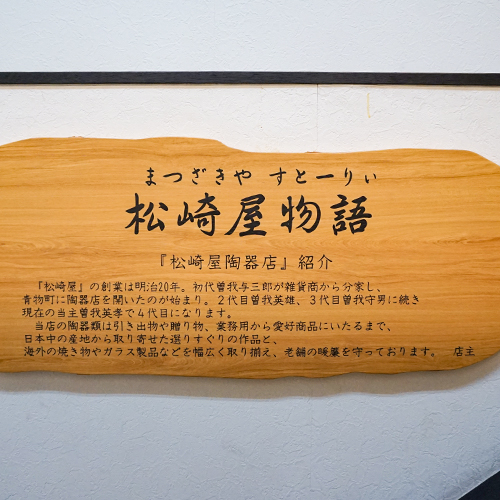 まつざきや すとーりぃ
松崎屋物語
『松崎屋陶器店』紹介
『松崎屋』の創業は明治20年。初代曽我与三郎が雑貨商から分家し、
青物町に陶器店を開いたのが始まり。2代目曽我英雄、3代目曽我守男に続き
現在の当主曽我英孝で4代目になります。
当店の陶器類は引き出物や贈り物、業務用から愛好商品にいたるまで、
日本中の産地から取り寄せた選りすぐりの作品と、
海外の焼き物やガラス製品などを幅広く取り揃え、老舗の暖簾を守っております。 店主